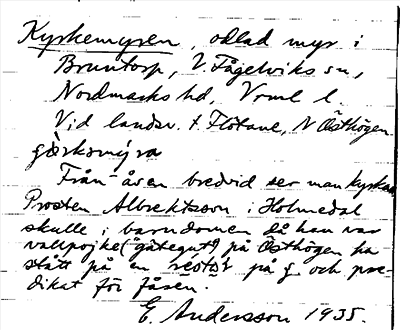 Kyrkemyren, odlad myr i
Bruntorp, V. Fågelviks sn,
Nordmarks hd, Vrml l.
Vid landsv. t. Flötane, N Östhögen
Från åsen bredvid ser man kyrkan
Prosten Albrektsson i Holmedal
skulle i barndomen då han var
vallpojke ("gätegut") på Östhögen ha
stått på en på g. och pre-
dikat för fåren.
E. Andersson 1935.